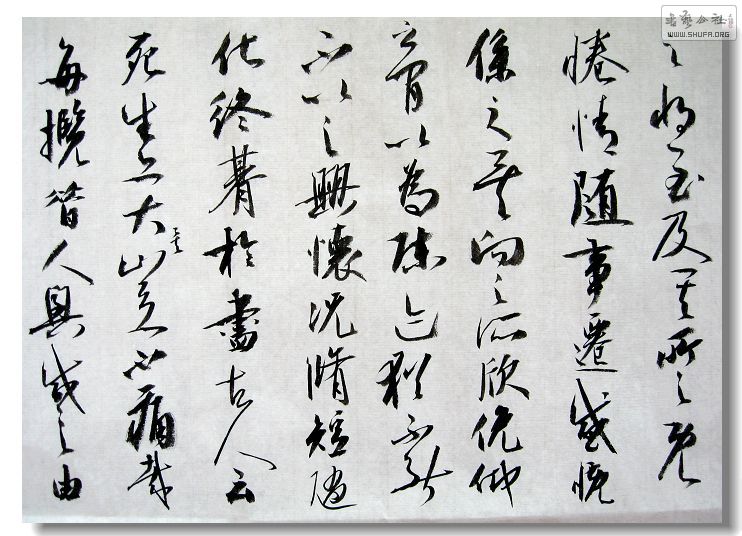 之將至及其所之既
惓情隨事遷感慨
係之矣向之所欣俛仰
之間以為陳迹猶不能
不以之興懷況脩短隨
化終期於盡古人云
死生亦大矣豈不痛哉
每攬昔人興感之由
书艺公社
WWW.SHUFA.ORG